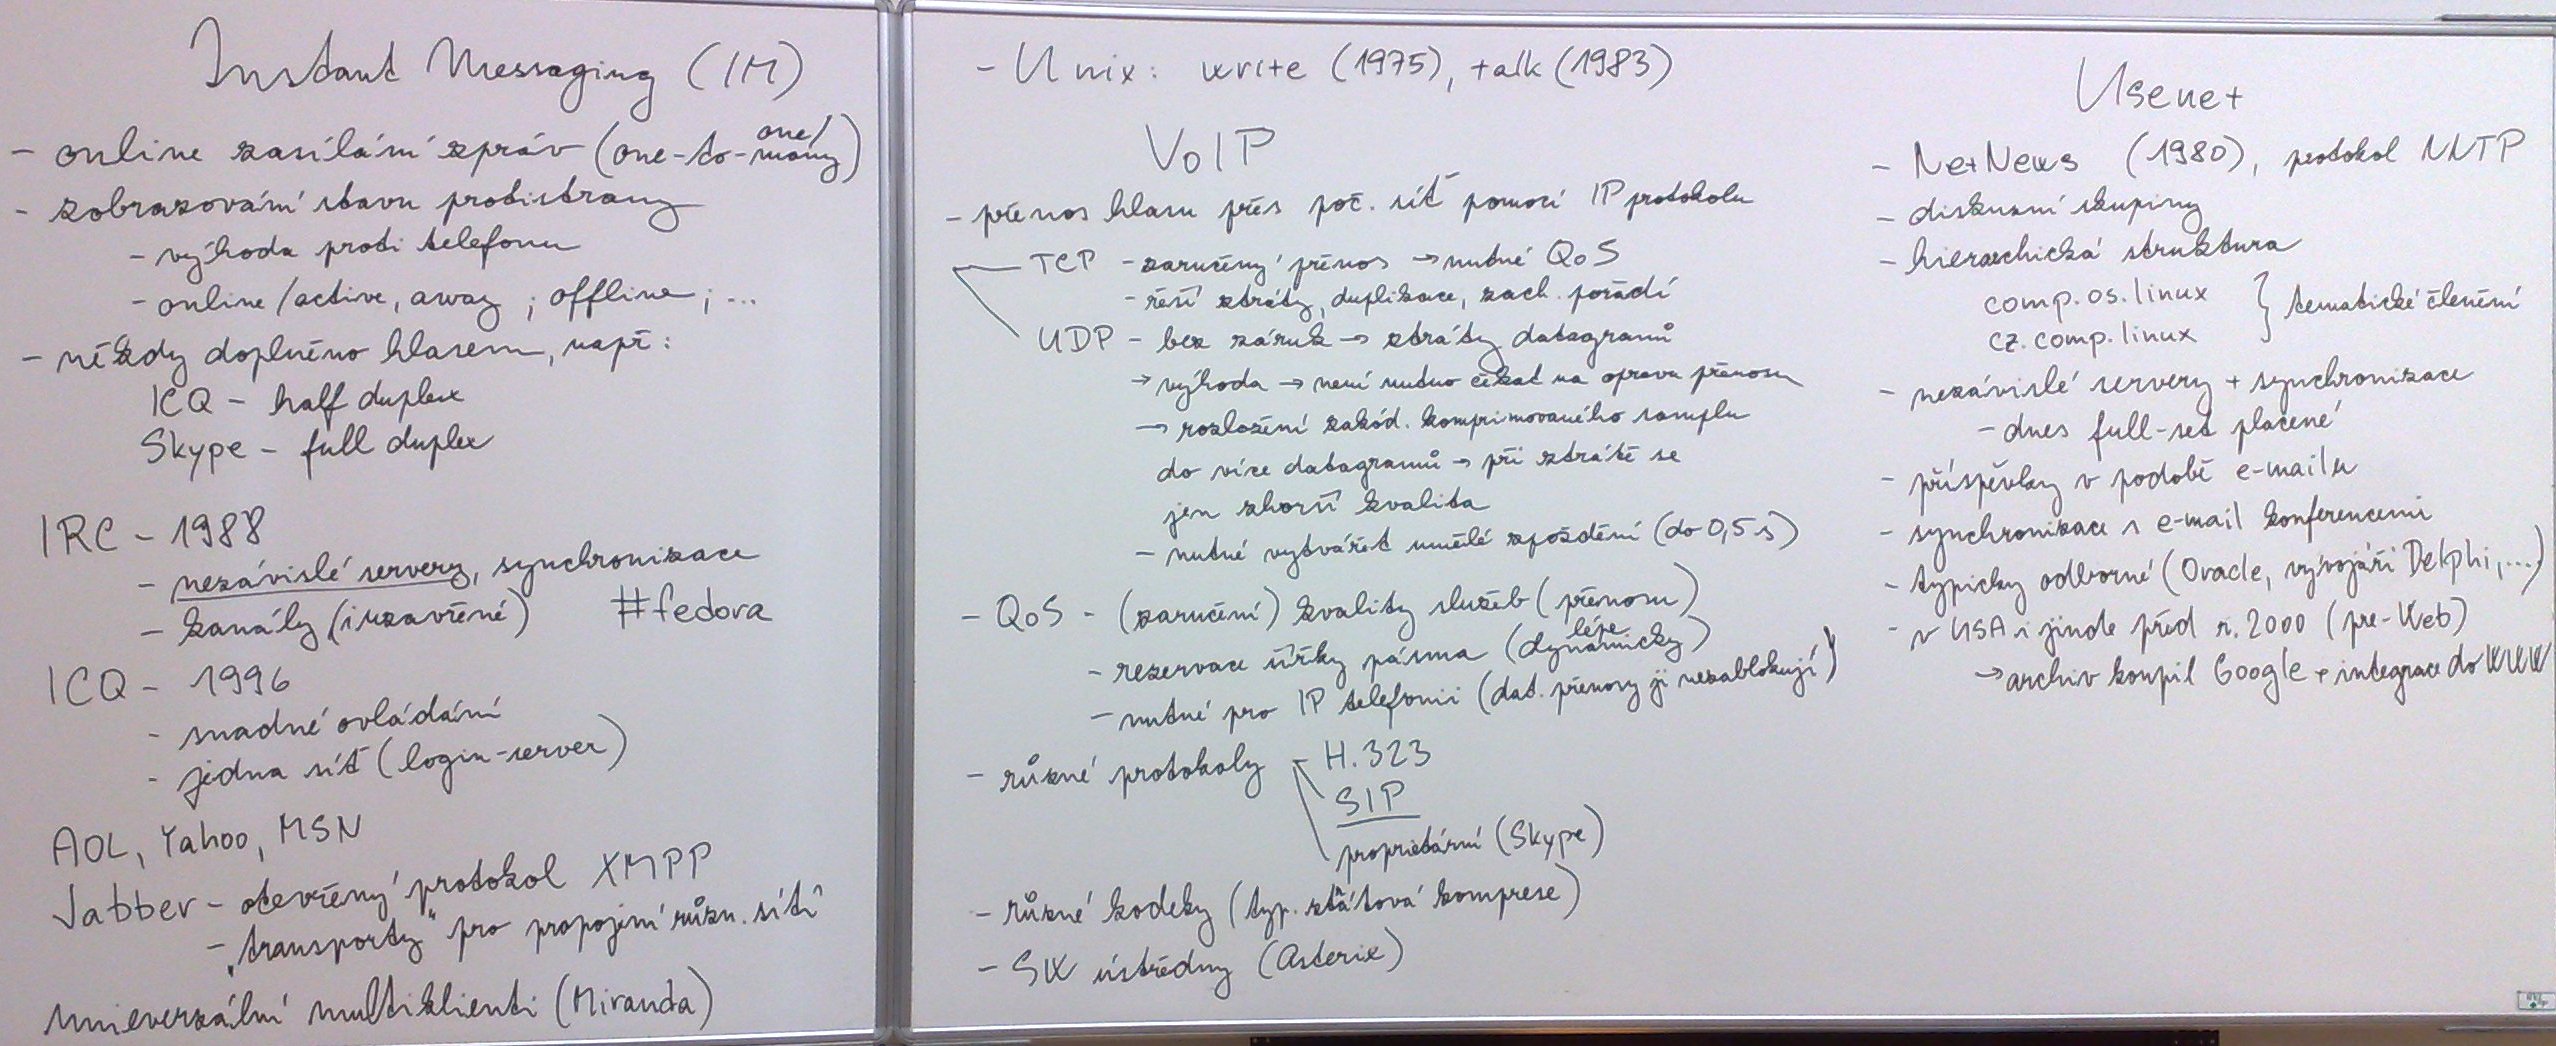 Instant Messaging (IM)
- online zasílání zpráv (one-to-one/many)
- zobrazování stavu protistrany
- výhoda proti telefonu
- online/active, away; offline; ...
- někdy doplněno hlasem, např:
ICQ - half duplex
Skype - full duplex
IRC - 1988
- nezávislé servery, synchronizace
- kanály (i uzavřené) #fedora
ICQ - 1996
- snadné ovládání
- jedna síť (login-server)
AOL, Yahoo, MSN
Jabber - otevřený protokol XMPP
- „transporty" pro propojení různ. sítí
unieverzální multiklienti (Miranda)
- Unix: write (1975), talk (1983)
VoIP
- přenos hlasu přes poč. síť pomocí IP protokolu
TCP - zaručený přenos → nutné QoS
- řeší ztráty, duplikace, zach. pořadí
UDP - bez záruk → ztráty datagramů
→ výhoda → není nutno čekat na opravu přenosu
→ rozložení zakód. komprimovaného samplu
do více datagramů → při ztrátě se
jen zhorší kvalita
- nutné vytvářet umělé zpoždění (do 0,5 s)
- QoS - (zaručení) kvality služeb (přenosu)
- rezervace šířky pásma (lépe dynamicky)
- nutné pro IP telefonii (dat. přenosy ji nezablokují)
- různé protokoly - H.323
SIP
proprietární (Skype)
- různé kodeky (typ. ztrátová komprese)
- SW ústředny (Asterix)
Usenet
- NetNews (1980), protokol NNTP
- diskusní skupiny
- hierarchická struktura
comp.os.linux } tematické členění
cz.comp.linux
- nezávislé servery + synchronizace
- dnes full-set placené
- příspěvky v podobě e-mailu
- synchronizace s e-mail konferencemi
- typicky odborné (Oracle, vývojáři Delphi,...)
- v USA i jinde před r. 2000 (pre-Web)
→ archiv koupil Google + integrace do WWW